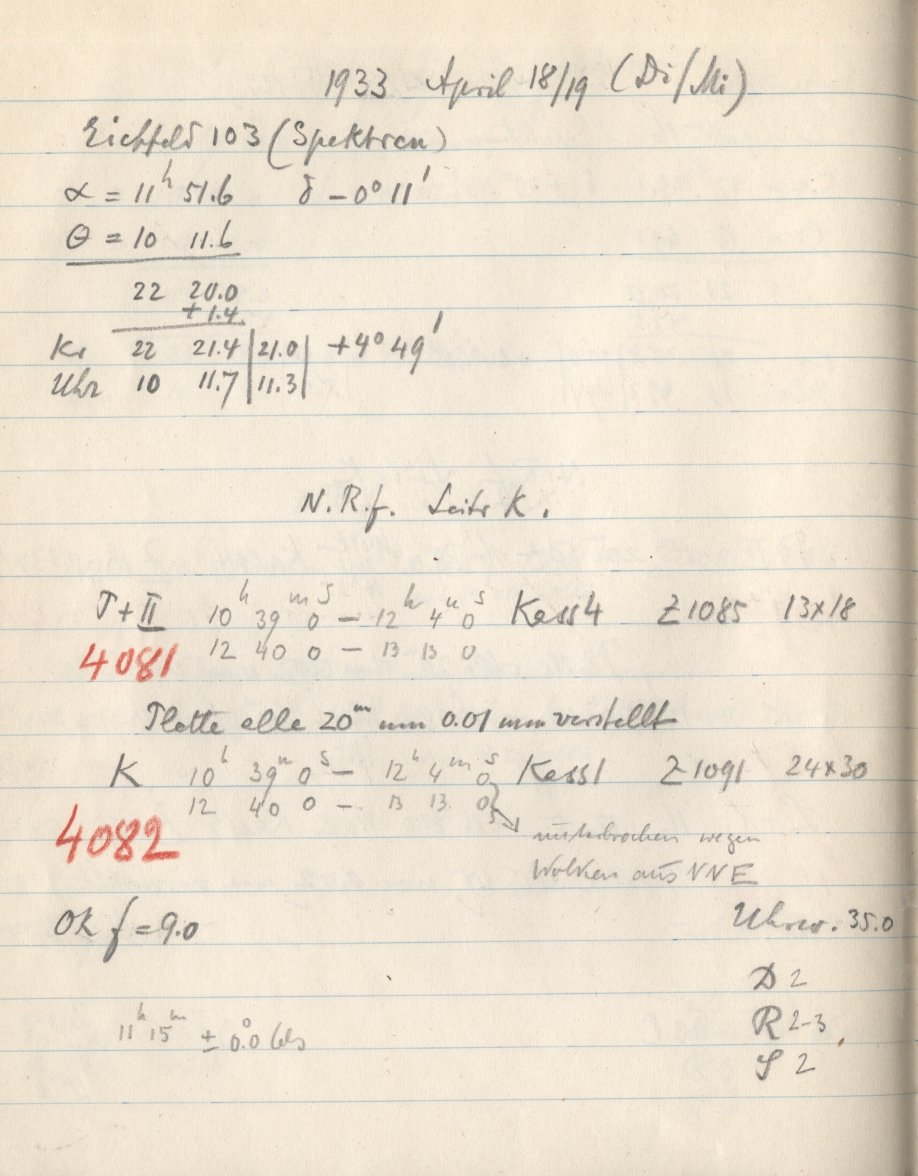 1933 April 18/19 (Di/Mi)
Eichfeld 103 (Spektren)
α = 11ʰ 51.6 δ − 0° 11'
Θ = 10 11.6
22 20.0
+ 1.4
Kr 22 21.4 | 21.0 | +4° 49'
Uhr 10 11.7 | 11.3 |
N.R.f. Leitr K.
T+II 10ʰ 39ᵐ 0ˢ − 12ʰ 4ᵐ 0ˢ Kass 4 Z 1085 13×18
4081 12 40 0 − 13 13 0
Platte alle 20ᵐ um 0.01 mm verstellt
K 10ʰ 39ᵐ 0ˢ − 12ʰ 4ᵐ 0ˢ Kass 1 Z 1091 24×30
12 40 0 − 13 13 0
4082
unterbrochen wegen
Wolken aus NNE
Ok f = 9.0
Uhrcor. 35.0
D 2
11ʰ 15ᵐ ± 0.0°
R 2-3
S 2